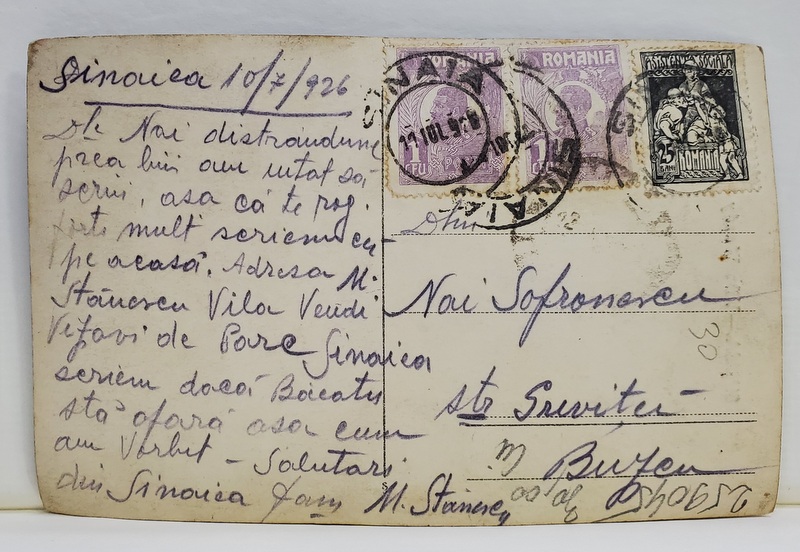 Sinaiea 10/7/926
Dle Nai distrându-ne
prea bine am uitat să
scriu, asa că te rog
forte mult scrieme ce-
pe acasă. Adresa M.
Stănescu Vila Vendi
Vizavi de Parc Sinaiea
scriem dacă Băeatu
stă afară asa cum
am Vorbit - Salutari
din Sinaiea Fam M. Stănescu
ROMANIA
1 LEU
ROMANIA
1 LEU
ASISTENTA SOCIALA
25 BANI
ROMANIA
SINAIA
11 IUL 926
SINAIA
Dlui
Nai Sofronescu
str
Buzeu
30
25904